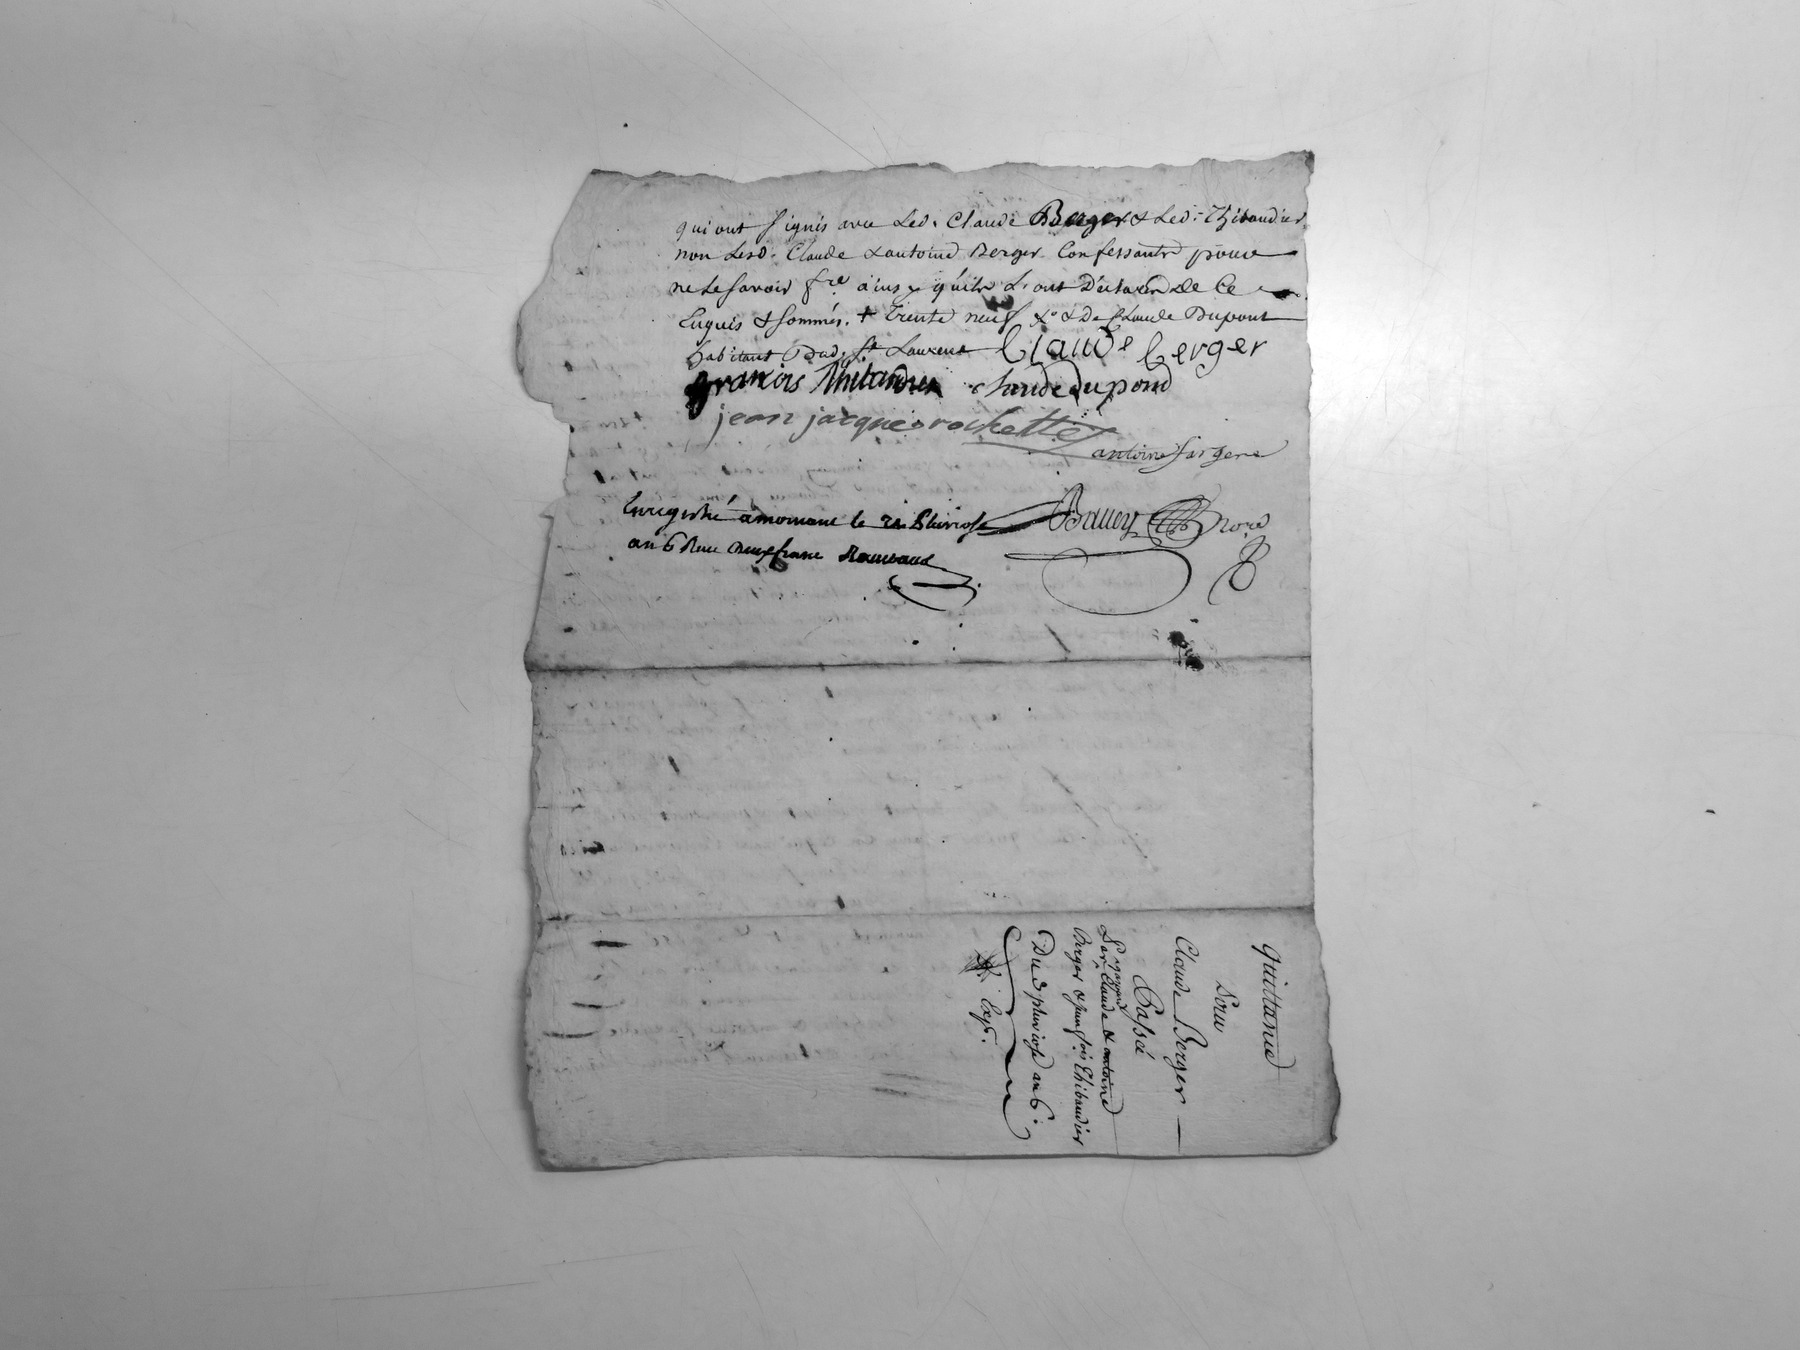 qui ont signés avec Led. Claude Berger & Led. Thibaudier
non Lesd. Claude & antoine Berger Confessants pour
ne Le savoir fre ainsy qu'ils L'ont Déclaré De Ce
Enquis & sommés. + Trente neuf & De Claude Dupont
habitant Dud. St Laurent Claude berger
francois Thibaudier claude dupond
jean jacque rochette
antoine fargere
Enregistré a mornant le 21 Pluviose
an 6 Reçu Deux franc
Balley Nore
quittance
Pour
Claude Berger
Passé
Par Claude & antoine
Berger & françois Thibaudier
Du 3 pluviose an 6.
Exp.